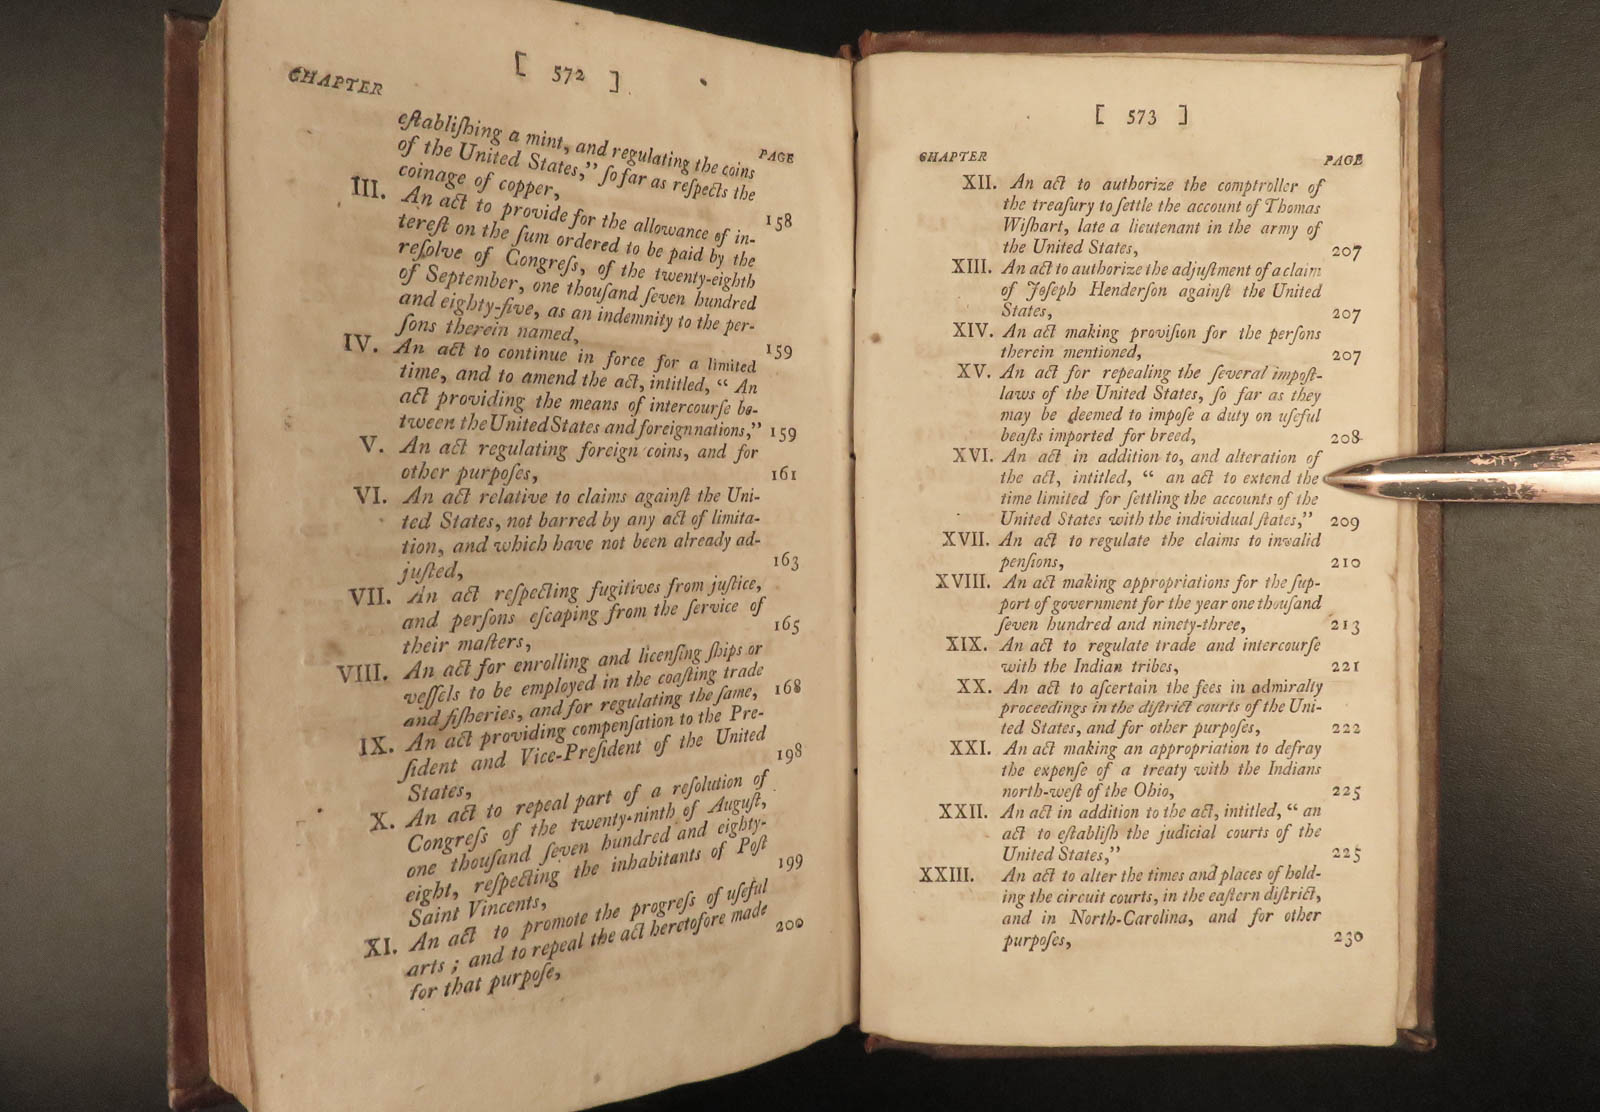 [ 572 ]
CHAPTER
PAGE
eſtabliſhing a mint, and regulating the coins
of the United States," ſo far as reſpects the
coinage of copper, 158
III. An act to provide for the allowance of in-
tereſt on the ſum ordered to be paid by the
reſolve of Congreſs, of the twenty-eighth
of September, one thouſand ſeven hundred
and eighty-five, as an indemnity to the per-
ſons therein named, 159
IV. An act to continue in force for a limited
time, and to amend the act, intitled, “ An
act providing the means of intercourſe be-
tween the United States and foreign nations,” 159
V. An act regulating foreign coins, and for
other purpoſes, 161
VI. An act relative to claims againſt the Uni-
ted States, not barred by any act of limita-
tion, and which have not been already ad-
juſted, 163
VII. An act reſpecting fugitives from juſtice,
and perſons eſcaping from the ſervice of
their maſters, 165
VIII. An act for enrolling and licenſing ſhips or
veſſels to be employed in the coaſting trade
and fiſheries, and for regulating the ſame, 168
IX. An act providing compenſation to the Pre-
ſident and Vice-Preſident of the United
States, 198
X. An act to repeal part of a reſolution of
Congreſs of the twenty-ninth of Auguſt,
one thouſand ſeven hundred and eighty-
eight, reſpecting the inhabitants of Poſt
Saint Vincents, 199
XI. An act to promote the progreſs of uſeful
arts ; and to repeal the act heretofore made
for that purpoſe, 200
[ 573 ]
CHAPTER PAGE
XII. An act to authorize the comptroller of
the treaſury to ſettle the account of Thomas
Wiſhart, late a lieutenant in the army of
the United States, 207
XIII. An act to authorize the adjuſtment of a claim
of Joſeph Henderſon againſt the United
States, 207
XIV. An act making proviſion for the perſons
therein mentioned, 207
XV. An act for repealing the ſeveral impoſt-
laws of the United States, ſo far as they
may be deemed to impoſe a duty on uſeful
beaſts imported for breed, 208
XVI. An act in addition to, and alteration of
the act, intitled, “ an act to extend the
time limited for ſettling the accounts of the
United States with the individual ſtates,” 209
XVII. An act to regulate the claims to invalid
penſions, 210
XVIII. An act making appropriations for the ſup-
port of government for the year one thouſand
ſeven hundred and ninety-three, 213
XIX. An act to regulate trade and intercourſe
with the Indian tribes, 221
XX. An act to aſcertain the fees in admiralty
proceedings in the diſtrict courts of the Uni-
ted States, and for other purpoſes, 222
XXI. An act making an appropriation to defray
the expenſe of a treaty with the Indians
north-weſt of the Ohio, 225
XXII. An act in addition to the act, intitled, “ an
act to eſtabliſh the judicial courts of the
United States,” 225
XXIII. An act to alter the times and places of hold-
ing the circuit courts, in the eaſtern diſtrict,
and in North-Carolina, and for other
purpoſes, 230